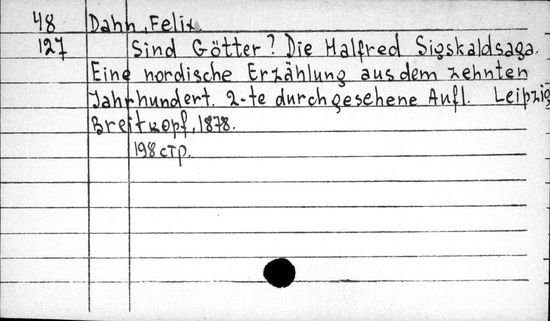 48 Dahn, Felix
127 Sind Götter? Die Halfred Sigskaldsaga.
Eine nordische Erzählung aus dem zehnten
Jahrhundert. 2-te durchgesehene Aufl. Leipzig
Breitkopf, 1878.
198 стр.